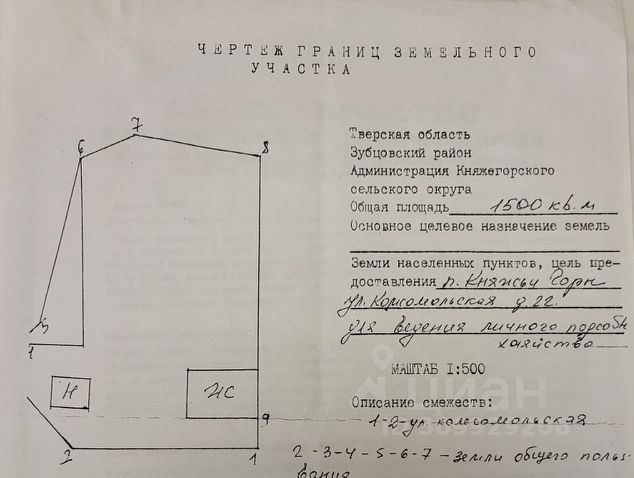 ЧЕРТЕЖ ГРАНИЦ ЗЕМЕЛЬНОГО
УЧАСТКА
7
6
8
5
1
Н
ЖС
9
2
1
Тверская область
Зубцовский район
Администрация Княжегорского
сельского округа
Общая площадь 1500 кв.м
Основное целевое назначение земель
Земли населенных пунктов, цель пре-
доставления п. Княжьи Горы
ул. Комсомольская д. 22.
для ведения личного подсобн
хозяйства
МАСШТАБ I:500
Описание смежеств:
1-2-ул. комсомольская
2-3-4-5-6-7-земли общего пользо
вания
циан